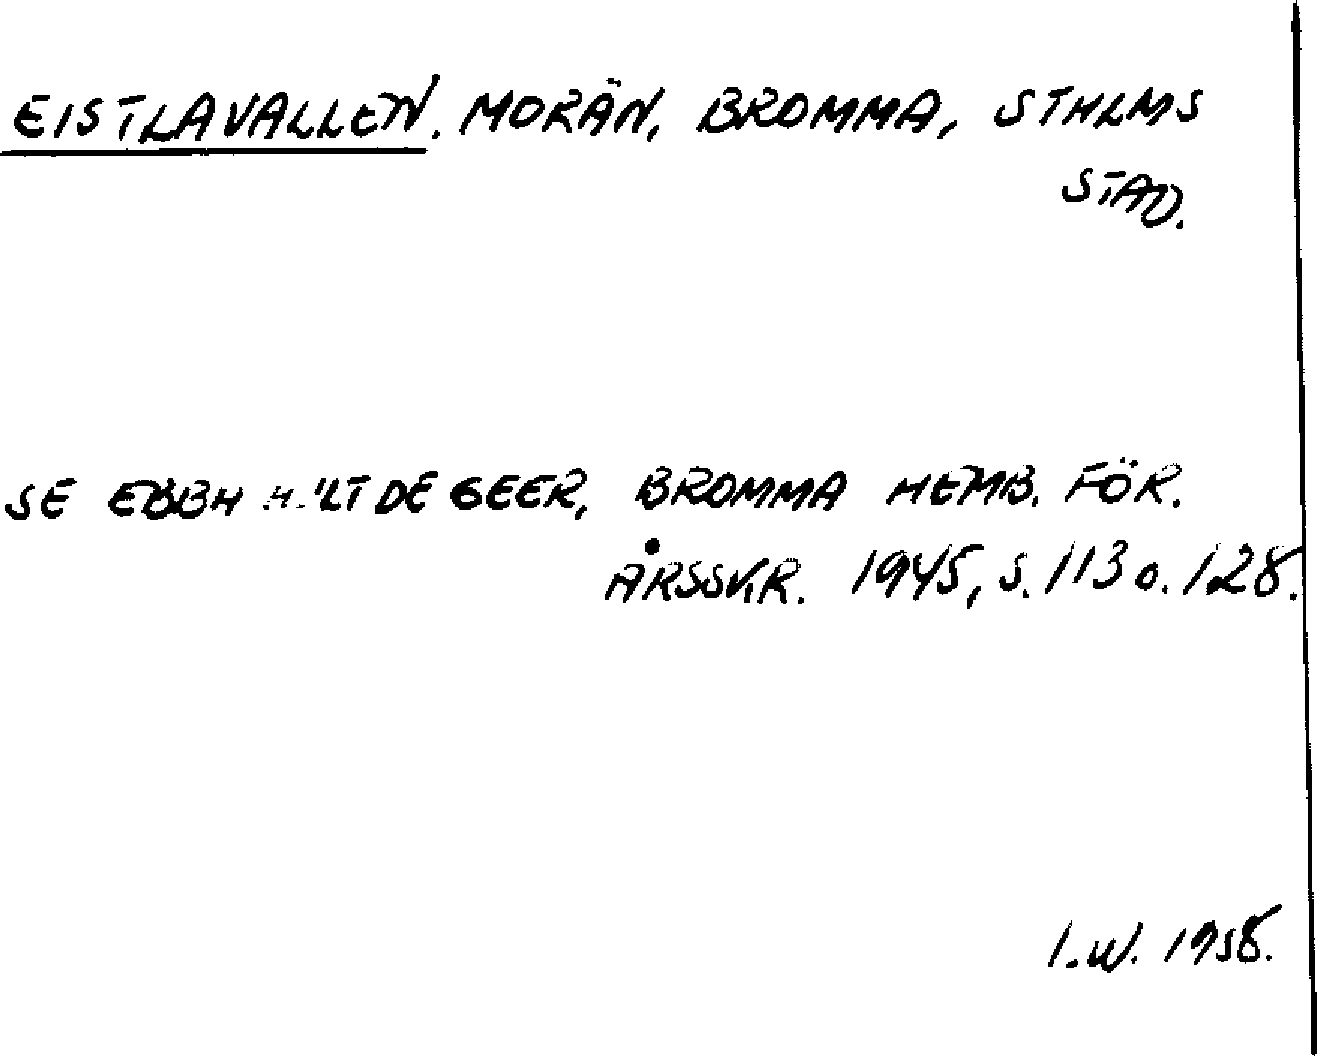 EISTLAVALLEN. MORÄN, BROMMA, STHLMS
STAD.
SE EBBA HULT DE GEER, BROMMA HEMB. FÖR.
ÅRSSKR. 1945, S. 113 o. 128.
I.W. 1958.